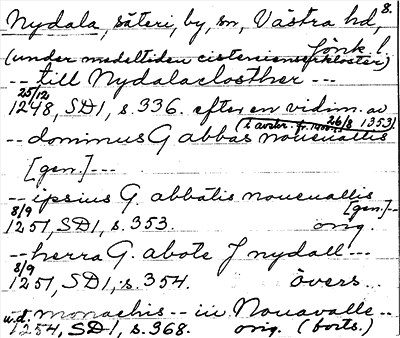 Nydala, säteri, by, sn, Västra hd, 8.
Jönk. l.
(under medeltiden cistercienserkloster)
-- till Nydalaclosther ---
25/12
1248, SD 1, s. 336. efter en vidim. av
26/8 1353)
-- dominus G abbas noueuallis
[gen.]---
-- ipsius G. abbatis nouevallis
[gen.]--
8/9
1251, SD 1, s. 353. orig.
-- herra G. abote J nydall --
8/9
1251, SD 1, s. 354. övers.
-- monachis -- in Nouavalle --
u.d.
1254, SD 1, s. 368. orig. (borts.)